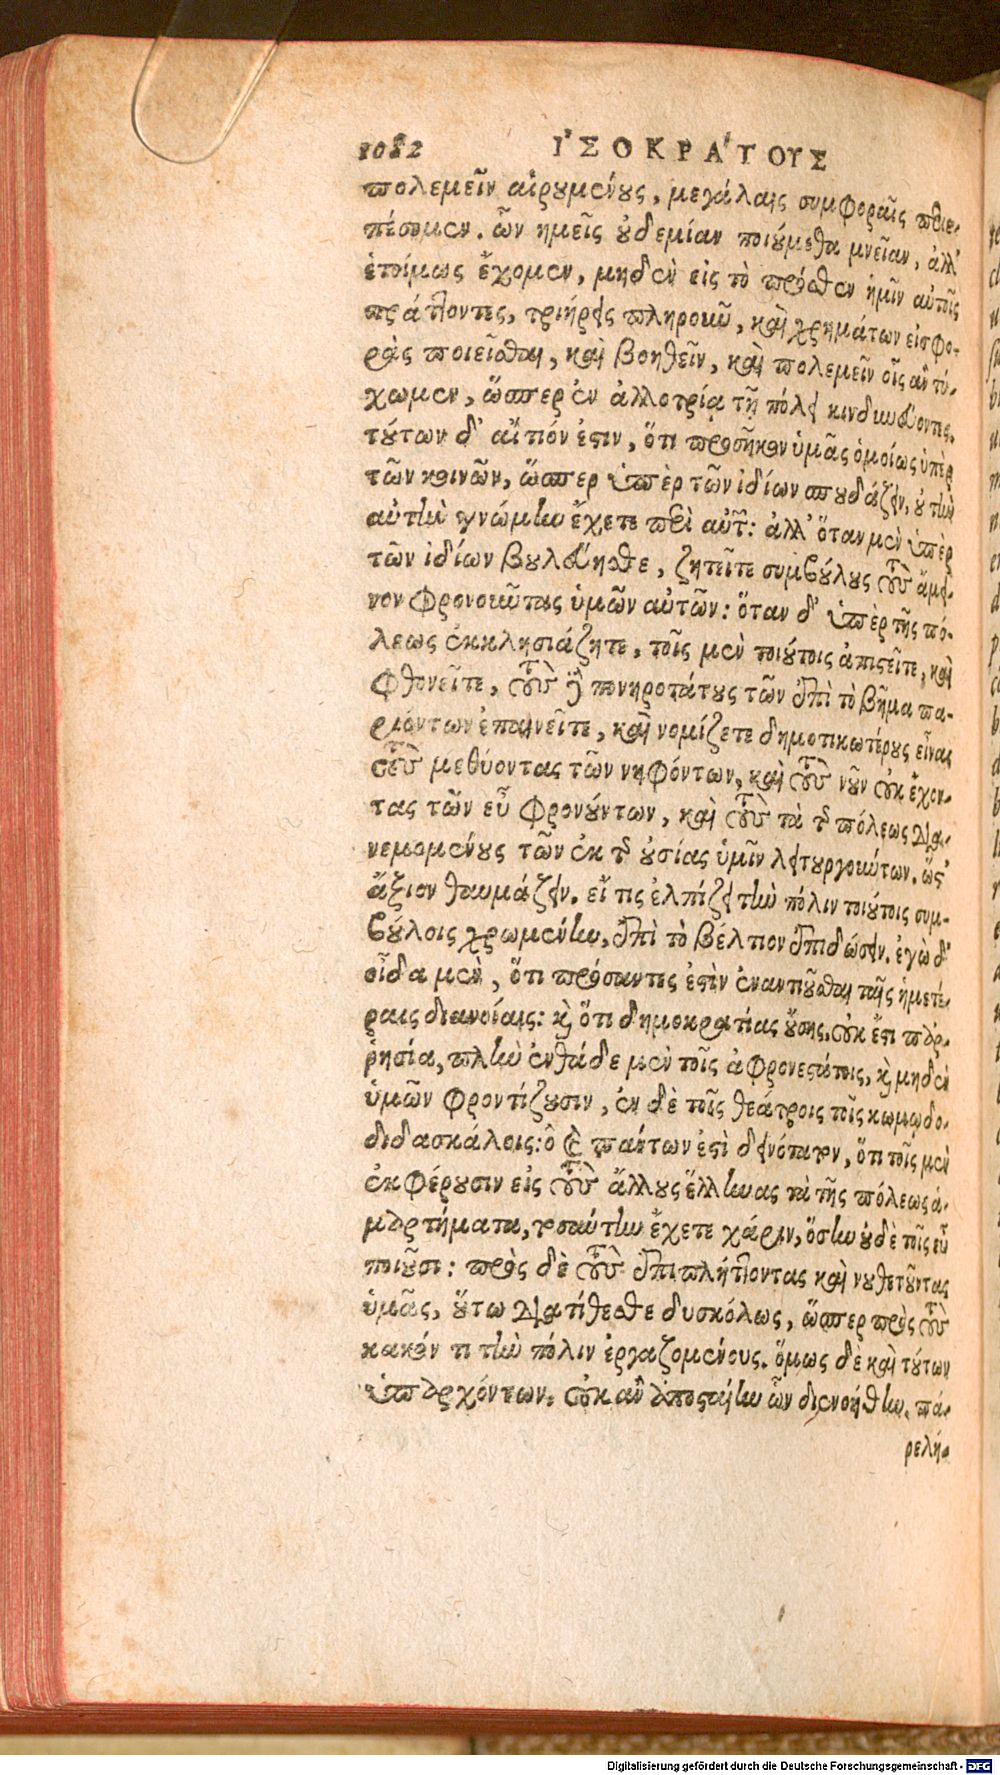 1082 ἸΣΟΚΡΆΤΟΥΣ
πολεμεῖν αἱρουμένους, μεγάλαις συμφοραῖς περιε-
πέσομεν. ὧν ἡμεῖς οὐδεμίαν ποιούμεθα μνείαν, ἀλλ'
ἑτοίμως ἔχομεν, μηδὲν εἰς τὸ πρόσθεν ἡμῖν αὐτοῖς
πράττοντες, τριήρεις πληροῦν, καὶ χρημάτων εἰσφο-
ρὰς ποιεῖσθαι, καὶ βοηθεῖν, καὶ πολεμεῖν οἷς ἂν τύ-
χωμεν, ὥσπερ ἐν ἀλλοτρίᾳ τῇ πόλει κινδυνεύοντες.
τούτων δ' αἴτιόν ἐστιν, ὅτι προσῆκον ὑμᾶς ὁμοίως ὑπὲρ
τῶν κοινῶν, ὥσπερ ὑπὲρ τῶν ἰδίων σπουδάζειν, οὐ τὴν
αὐτὴν γνώμην ἔχετε περὶ αὐτῶν: ἀλλ' ὅταν μὲν ὑπὲρ
τῶν ἰδίων βουλεύησθε, ζητεῖτε συμβούλους τοὺς ἄμει-
νον φρονοῦντας ὑμῶν αὐτῶν: ὅταν δ' ὑπὲρ τῆς πό-
λεως ἐκκλησιάζητε, τοῖς μὲν τοιούτοις ἀπιστεῖτε, καὶ
φθονεῖτε, τοὺς δὲ πονηροτάτους τῶν ἐπὶ τὸ βῆμα πα-
ριόντων ἐπαινεῖτε, καὶ νομίζετε δημοτικωτέρους εἶναι
τοὺς μεθύοντας τῶν νηφόντων, καὶ τοὺς νοῦν οὐκ ἔχον-
τας τῶν εὖ φρονούντων, καὶ τοὺς τὰ τῆς πόλεως δια-
νεμομένους τῶν ἐκ τῆς οὐσίας ὑμῖν λειτουργούντων. ὥστ'
ἄξιον θαυμάζειν. εἴ τις ἐλπίζει τὴν πόλιν τοιούτοις συμ-
βούλοις χρωμένην, ἐπὶ τὸ βέλτιον ἐπιδώσειν. ἐγὼ δ'
οἶδα μὲν, ὅτι πρόσαντές ἐστὶν ἐναντιοῦσθαι ταῖς ἡμετέ-
ραις διανοίαις: καὶ ὅτι δημοκρατίας οὔσης, οὐκ ἔστι παρ-
ῥησία, πλὴν ἐνθάδε μὲν τοῖς ἀφρονεστάτοις, καὶ μηδὲν
ὑμῶν φροντίζουσιν, ἐν δὲ τοῖς θεάτροις τοῖς κωμῳδο-
διδασκάλοις: ὃ καὶ πάντων ἐστὶ δεινότατον, ὅτι τοῖς μὲν
ἐκφέρουσιν εἰς τοὺς ἄλλους ἕλληνας τὰ τῆς πόλεως ἁ-
μαρτήματα, τοσαύτην ἔχετε χάριν, ὅσην οὐδὲ τοῖς εὖ
ποιοῦσι: πρὸς δὲ τοὺς ἐπιπλήττοντας καὶ νουθετοῦντας
ὑμᾶς, οὕτω διατίθεσθε δυσκόλως, ὥσπερ πρὸς τοὺς
κακόν τι τὴν πόλιν ἐργαζομένους. ὅμως δὲ καὶ τούτων
ὑπαρχόντων, οὐκ ἂν ἀποσταίην ὧν διενοήθην. πα-
ρελή-
Digitalisierung gefördert durch die Deutsche Forschungsgemeinschaft - DFG